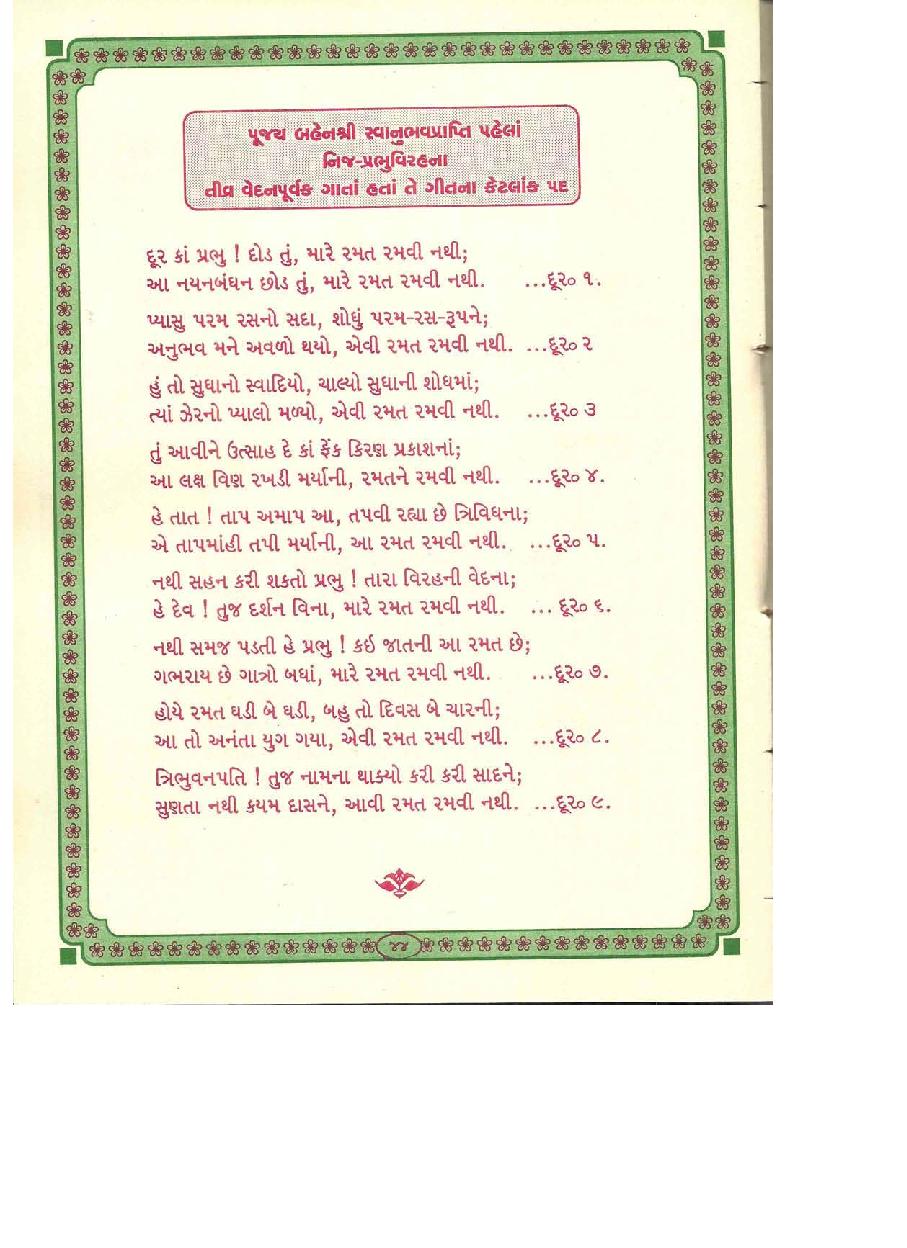 પૂજ્ય બહેનશ્રી સ્વાનુભવપ્રાપ્તિ પહેલાં
નિજ-પ્રભુવિરહના
તીવ્ર વેદનપૂર્વક ગાતાં હતાં તે ગીતના કેટલાંક પદ
દૂર કાં પ્રભુ ! દોડ તું, મારે રમત રમવી નથી;
આ નયનબંધન છોડ તું, મારે રમત રમવી નથી. ...દૂર૦ ૧.
પ્યાસુ પરમ રસનો સદા, શોધું પરમ-રસ-રૂપને;
અનુભવ મને અવળો થયો, એવી રમત રમવી નથી. ...દૂર૦ ૨
હું તો સુધાનો સ્વાદિયો, ચાલ્યો સુધાની શોધમાં;
ત્યાં ઝેરનો પ્યાલો મળ્યો, એવી રમત રમવી નથી. ...દૂર૦ ૩
તું આવીને ઉત્સાહ દે કાં ફેંક કિરણ પ્રકાશનાં;
આ લક્ષ વિણ રખડી મર્યાની, રમતને રમવી નથી. ...દૂર૦ ૪.
હે તાત ! તાપ અમાપ આ, તપવી રહ્યા છે ત્રિવિધના;
એ તાપમાંહી તપી મર્યાની, આ રમત રમવી નથી. ...દૂર૦ ૫.
નથી સહન કરી શકતો પ્રભુ ! તારા વિરહની વેદના;
હે દેવ ! તુજ દર્શન વિના, મારે રમત રમવી નથી. ... દૂર૦ ૬.
નથી સમજ પડતી હે પ્રભુ ! કઇ જાતની આ રમત છે;
ગભરાય છે ગાત્રો બધાં, મારે રમત રમવી નથી. ...દૂર૦ ૭.
હોયે રમત ઘડી બે ઘડી, બહુ તો દિવસ બે ચારની;
આ તો અનંતા યુગ ગયા, એવી રમત રમવી નથી. ...દૂર૦ ૮.
ત્રિભુવનપતિ ! તુજ નામના થાક્યો કરી કરી સાદને;
સુણતા નથી કયમ દાસને, આવી રમત રમવી નથી. ...દૂર૦ ૯.
૪૪